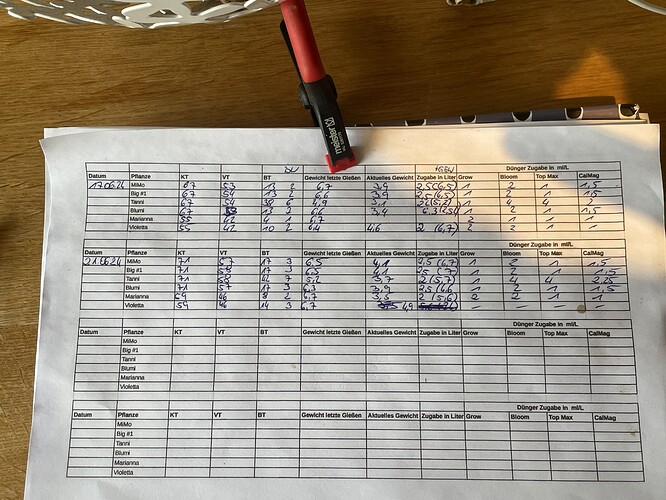 meister
Dünger Zugabe in ml/L
Datum Pflanze KT VT BT Gewicht letzte Gießen Aktuelles Gewicht Zugabe in Liter Grow Bloom Top Max CalMag
17.06.24 MiMo 67 53 13 2 6,7 3,9 2,5 (6,5) 1 2 1 1,5
Big #1 67 54 13 2 3,9 2,5 (6,5) 1 2 1 1,5
Tanni 67 54 38 6 4,9 3,1 4 4 2
Blumi 67 13 2 6,6 3,4 1 2 1 1,5
Marianna 55 42 4 1 6,7 2 1 1
Violetta 55 42 10 2 6,4 4,6 2 (6,7) –
Dünger Zugabe in ml/L
Datum Pflanze KT VT BT Gewicht letzte Gießen Aktuelles Gewicht Zugabe in Liter Grow Bloom Top Max CalMag
21.06.24 MiMo 71 57 17 3 6,5 4,1 2,5 (6,7) 1 2 1 1,5
Big #1 71 58 17 3 6,5 4,1 1 2 1 1,5
Tanni 71 58 42 7 5,2 3,7 2 (5,7) 1 4 4 2,25
Blumi 71 57 17 3 6,3 3,9 2,5 (6,6 1 2 1 1,5
Marianna 59 46 8 2 6,7 3,5 2 (5,6) 2 2 1 1
Violetta 59 46 14 3 6,7 4,9 – – – –
Dünger Zugabe in ml/L
Datum Pflanze KT VT BT Gewicht letzte Gießen Aktuelles Gewicht Zugabe in Liter Grow Bloom Top Max CalMag
MiMo
Big #1
Tanni
Blumi
Marianna
Violetta
Dünger Zugabe in ml/L
Datum Pflanze KT VT BT Gewicht letzte Gießen Aktuelles Gewicht Zugabe in Liter Grow Bloom Top Max CalMag
MiMo
Big #1
Tanni
Blumi
Marianna
Violetta